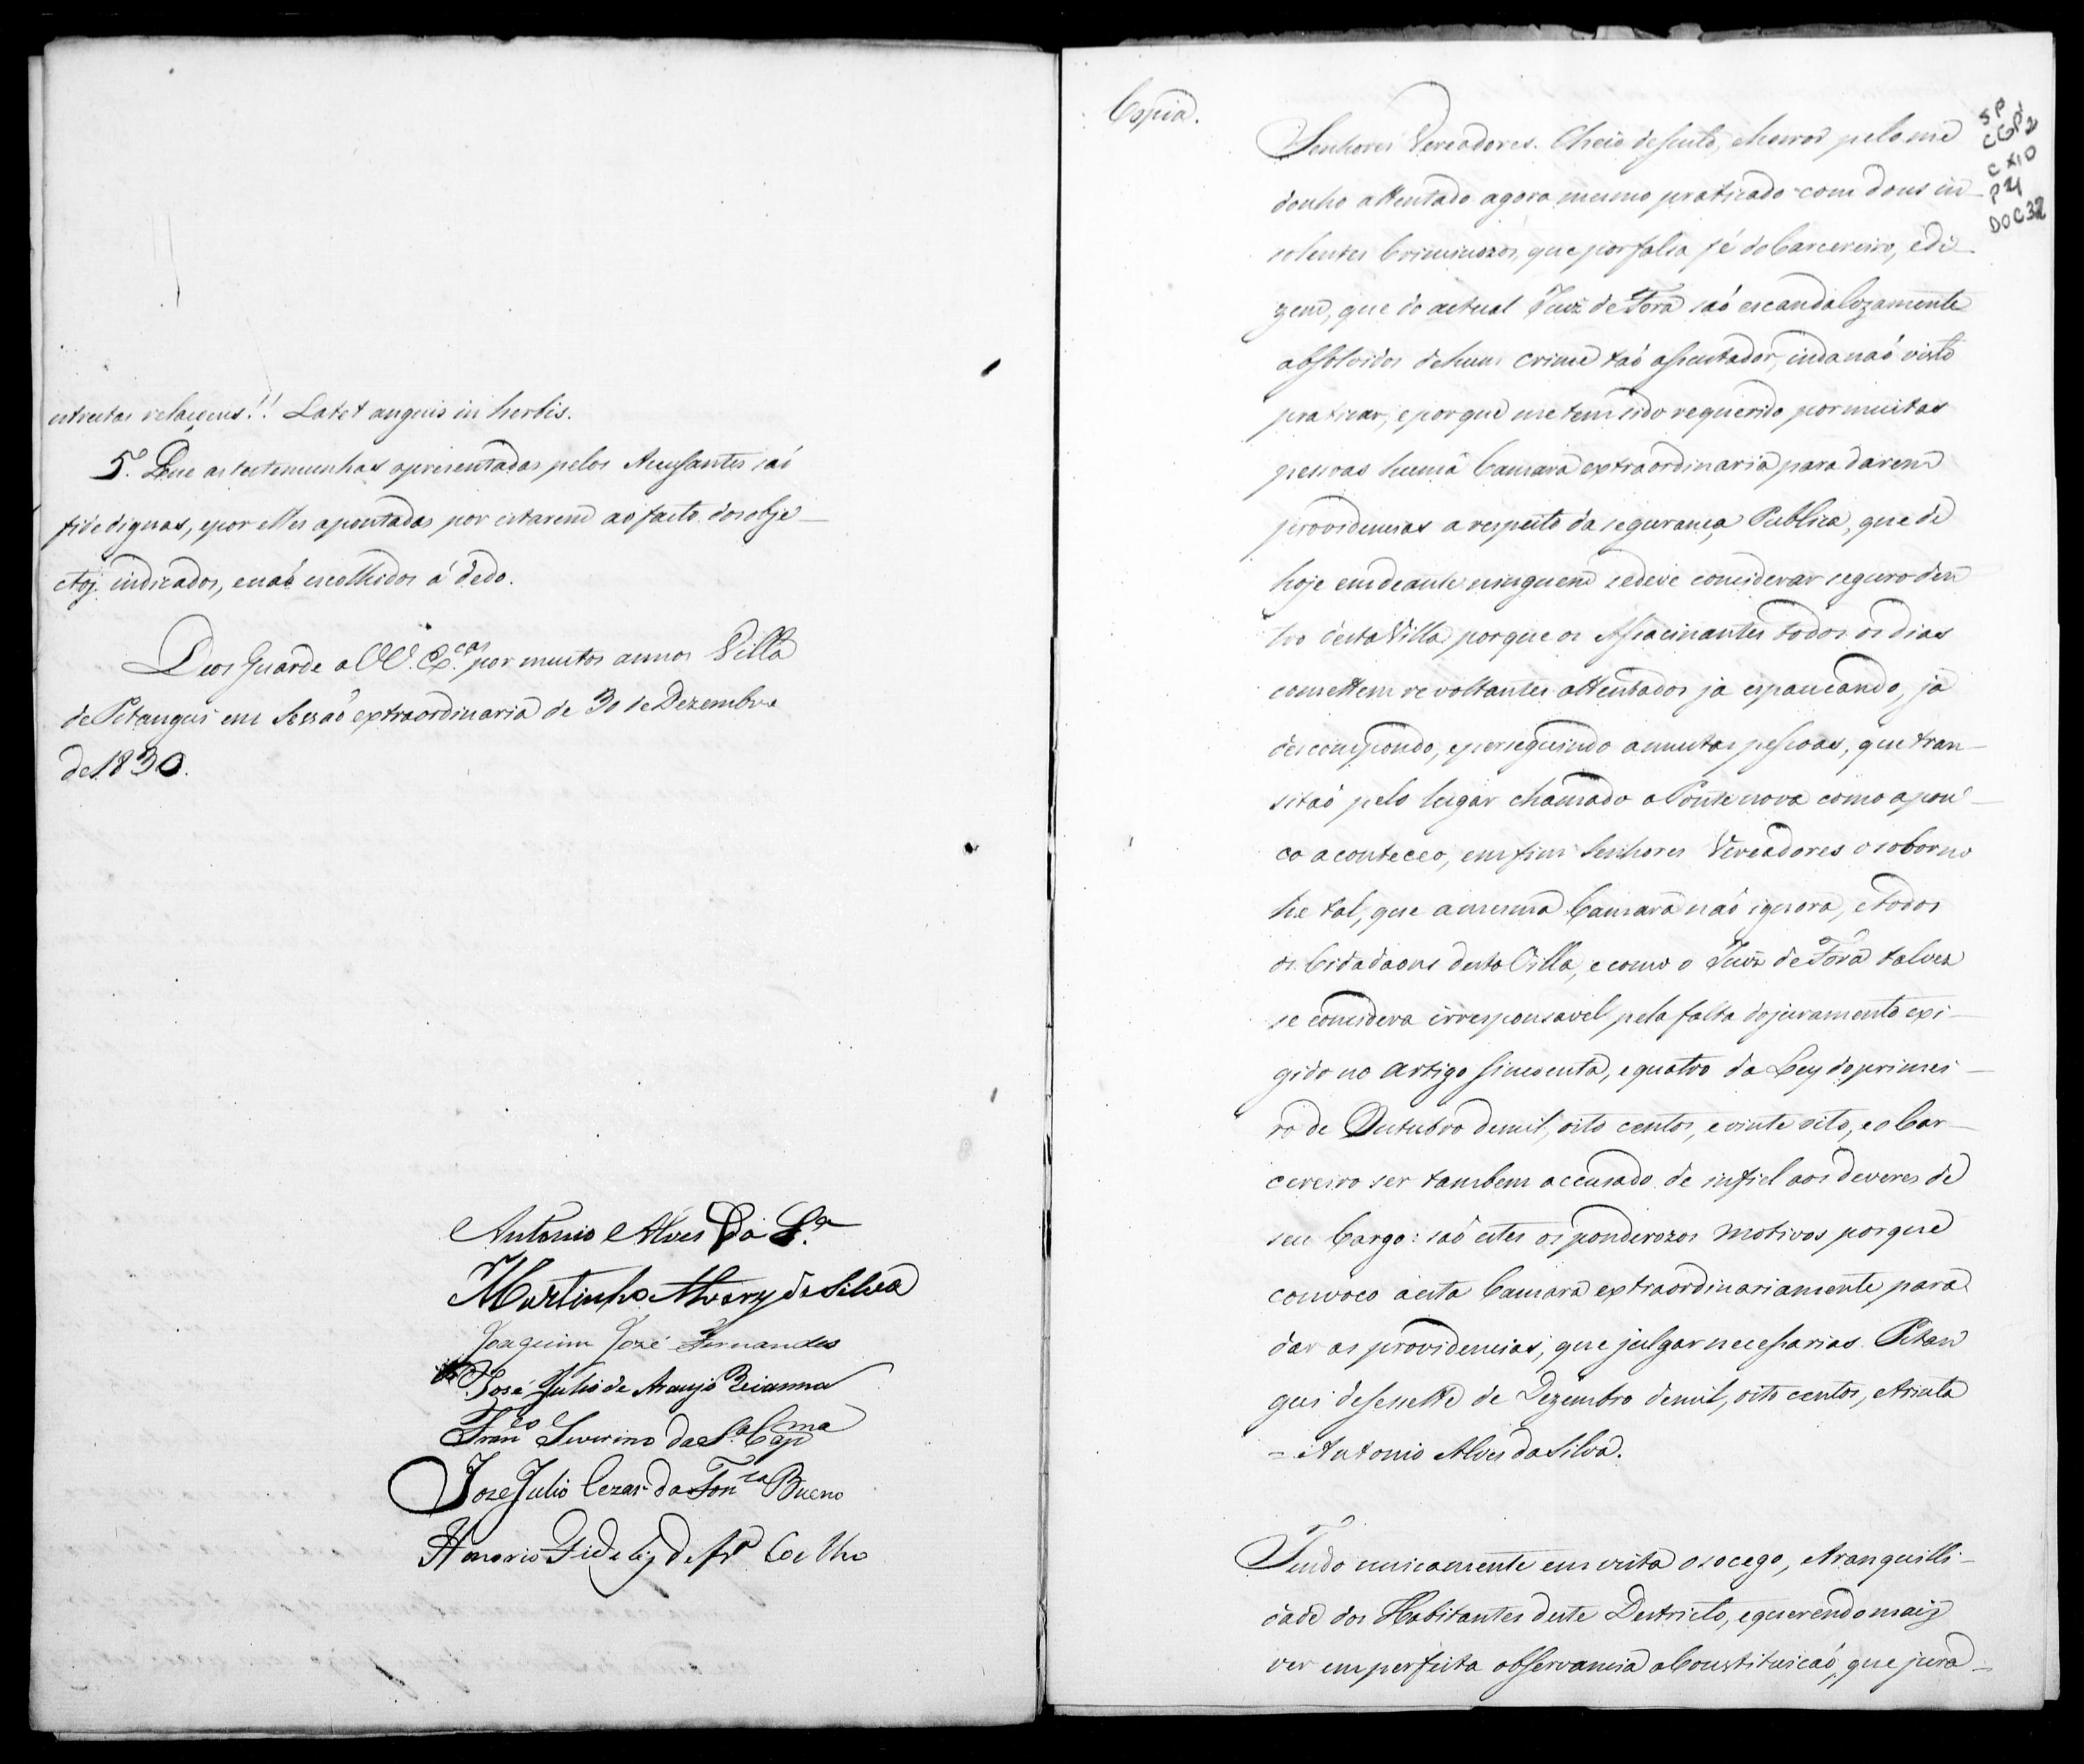 estreitas relaçoens!! Latet anguis in herbis.
5º. Que as testemunhas apresentadas pelos Accusantes saó
fidedignas, epor elles apontadas por estarem ao facto dos obje-
ctos indicados, enaó escolhidos á dedo.
Deos Guarde a VV. Ex.cas por muitos annos Villa
de Pitangui em Sessaó extraordinaria de 30 de Dezembro
de 1830.
Antonio Alves Da S.ª
Martinho Alvarz da Silva
Joaquim José Fernandes
José Julio de Araujo Vianna
Fran.co Severino da S.ª
Joze Julio Cezar da Fon.ca Bueno
Honorio Fidelis de Ar.º Coelho
Copia.
SP
CGP2
CX10
P21
DOC32
Senhores Vereadores. Cheio desusto, ehorror pelo me
donho attentado agora mesmo praticado com dous in-
solentes Criminozos, que por falta fé do Carcereiro, edi-
zem, que do actual Juiz de Fora saó escandalozamente
absolvidos dehum crime taó assustador, inda naó visto
praticar; eporque me tem sido requerido por muitas
pessoas huma Camara extraordinaria para darem
providencias a respeito da segurança Publica, que de
hoje em deante ninguem sedeve considerar seguro den
tro desta Villa, porque os Assacinantes todos os dias
comettem revoltantes attentados já espancando, já
descompondo, eperseguindo amuitas pessoas, que tran-
sitaó pelo lugar chamado a Ponte nova como apou-
co aconteceo, em fim Senhores Vereadores o soborno
he tal, que amesma Camara naó ignora, etodos
os Cidadaons desta Villa, e como o Juiz de Fora talves
se considera irresponsavel pela falta do juramento exi-
gido no artigo sincoenta, equatro da Ley do primei-
ro de Outubro demil, oito centos, evinte oito, eo Car-
cereiro ser tambem accusado de infiel aos deveres de
seu Cargo: saó estes os ponderozos motivos porque
convoco aesta Camara extraordinariamente para
dar as providencias, que julgar necessarias. Pitan
gui desesette de Dezembro demil, oito centos, etrinta
= Antonio Alves da Silva.
Tendo unicamente em vista osocego, etranquilli-
dade dos Habitantes deste Destricto, equerendo mais
ver em perfeita observancia aConstituicaó, que jura-